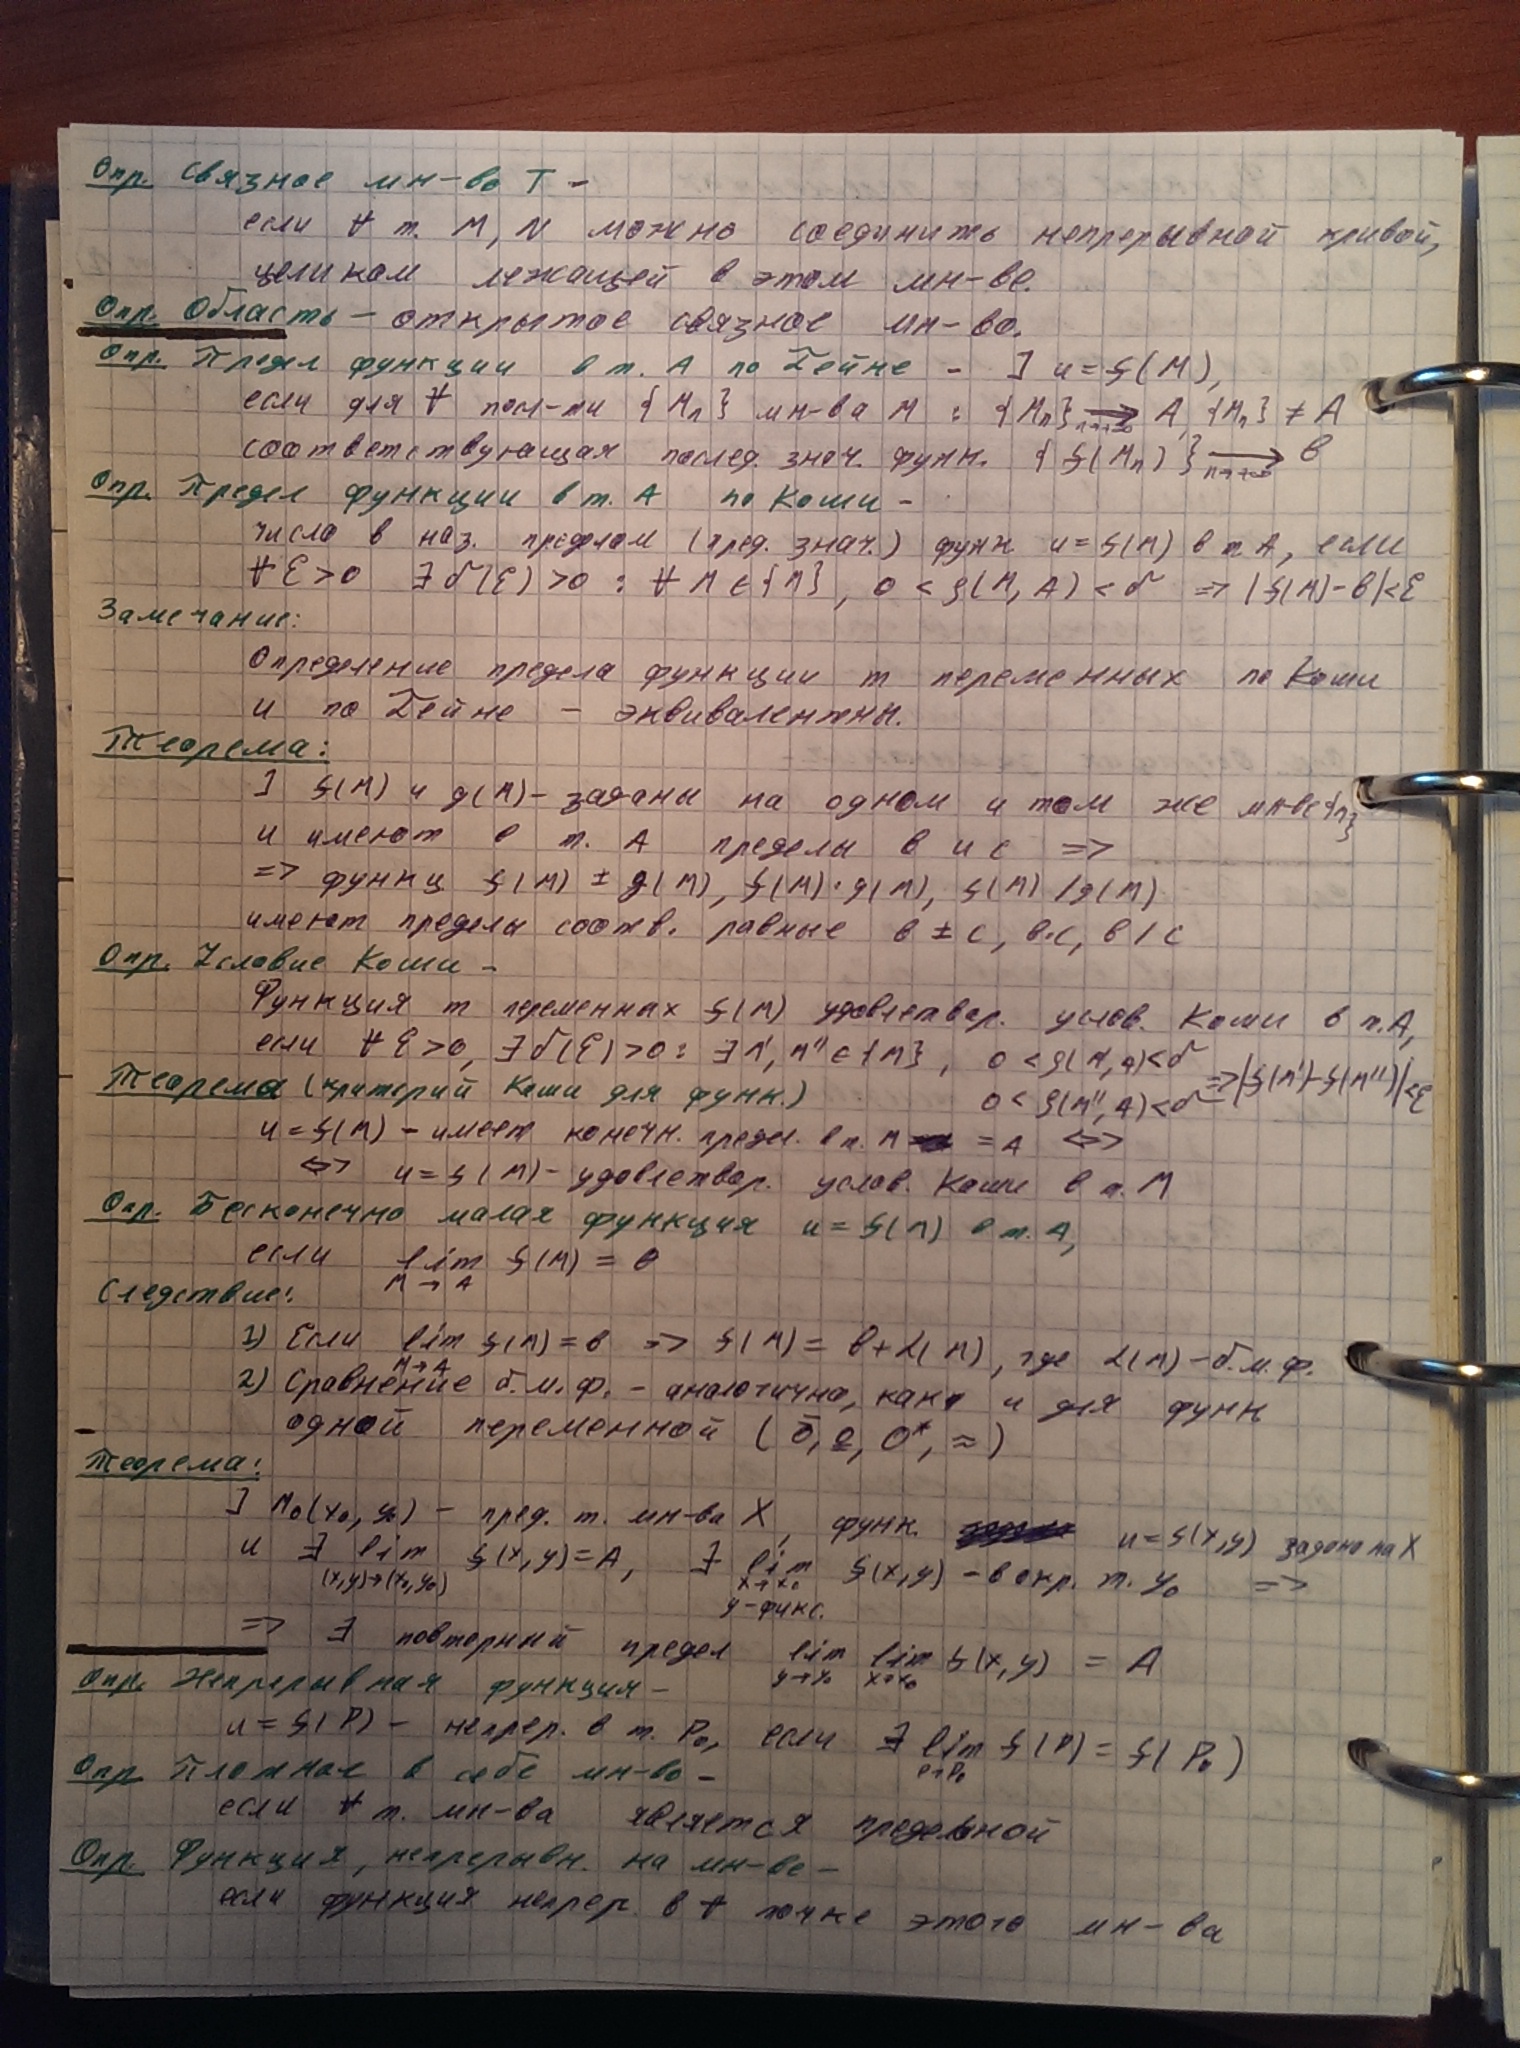 Опр. Связное мн-во T -
если ∀ т. M, N можно соединить непрерывной кривой,
целиком лежащей в этом мн-ве.
Опр. Область - открытое связное мн-во.
Опр. Предел функции в т. A по Гейне - ∃ u = f(M),
если для ∀ посл-ти {Mn} мн-ва M : {Mn} →n→∞ A, {Mn} ≠ A
соответствующая послед. знач. функ. {f(Mn)} →n→∞ b
Опр. Предел функции в т. A по Коши -
число b наз. пределом (пред. знач.) функ u = f(M) в т A, если
∀ε>0 ∃ δ(ε)>0 : ∀ M ∈ {M}, 0 < ρ(M, A) < δ => |f(M) - b| < ε
Замечание:
Определение предела функции m переменных по Коши
и по Гейне - эквивалентны.
Теорема:
] f(M) и g(M) - заданы на одном и том же мн-ве {M}
и имеют в т. A пределы b и c =>
=> функц f(M) ± g(M), f(M) · g(M), f(M) / g(M)
имеют пределы соотв. равные b ± c, b·c, b / c
Опр. Условие Коши -
Функция m переменнах f(M) удовлетвор. услов. Коши в т. A,
если ∀ ε>0, ∃ δ(ε)>0 : ∃ M', M'' ∈ {M}, 0 < ρ(M', A) < δ
=> |f(M') - f(M'')| < ε
Теорема (критерий Коши для функ.) 0 < ρ(M'', A) < δ
u = f(M) - имеет конечн. предел. в т. M = A <=>
<=> u = f(M) - удовлетвор. услов. Коши в т. M
Опр. Бесконечно малая функция u = f(M) в т. A,
если lim f(M) = 0
M → A
Следствие:
1) Если lim f(M) = b => f(M) = b + α(M), где α(M) - б.м.ф.
M → A
2) Сравнение б.м.ф. - аналогично, как и для функ
одной переменной (ō, o, O*, ≈)
Теорема:
] M₀(x₀, y₀) - пред. т. мн-ва X, функ. u = f(x,y) задана на X
и ∃ lim f(x,y) = A, ∃ lim f(x,y) - в окр. т. y₀ =>
(x,y)→(x₀,y₀) x→x₀
y - фикс.
=> ∃ повторный предел lim lim f(x,y) = A
y→y₀ x→x₀
Опр. Непрерывная функция -
u = f(P) - непрер. в т. P₀, если ∃ lim f(P) = f(P₀)
P→P₀
Опр. Плотное в себе мн-во -
если ∀ т. мн-ва является предельной
Опр. Функция, непрерывн. на мн-ве -
если функция непрер. в ∀ точке этого мн-ва